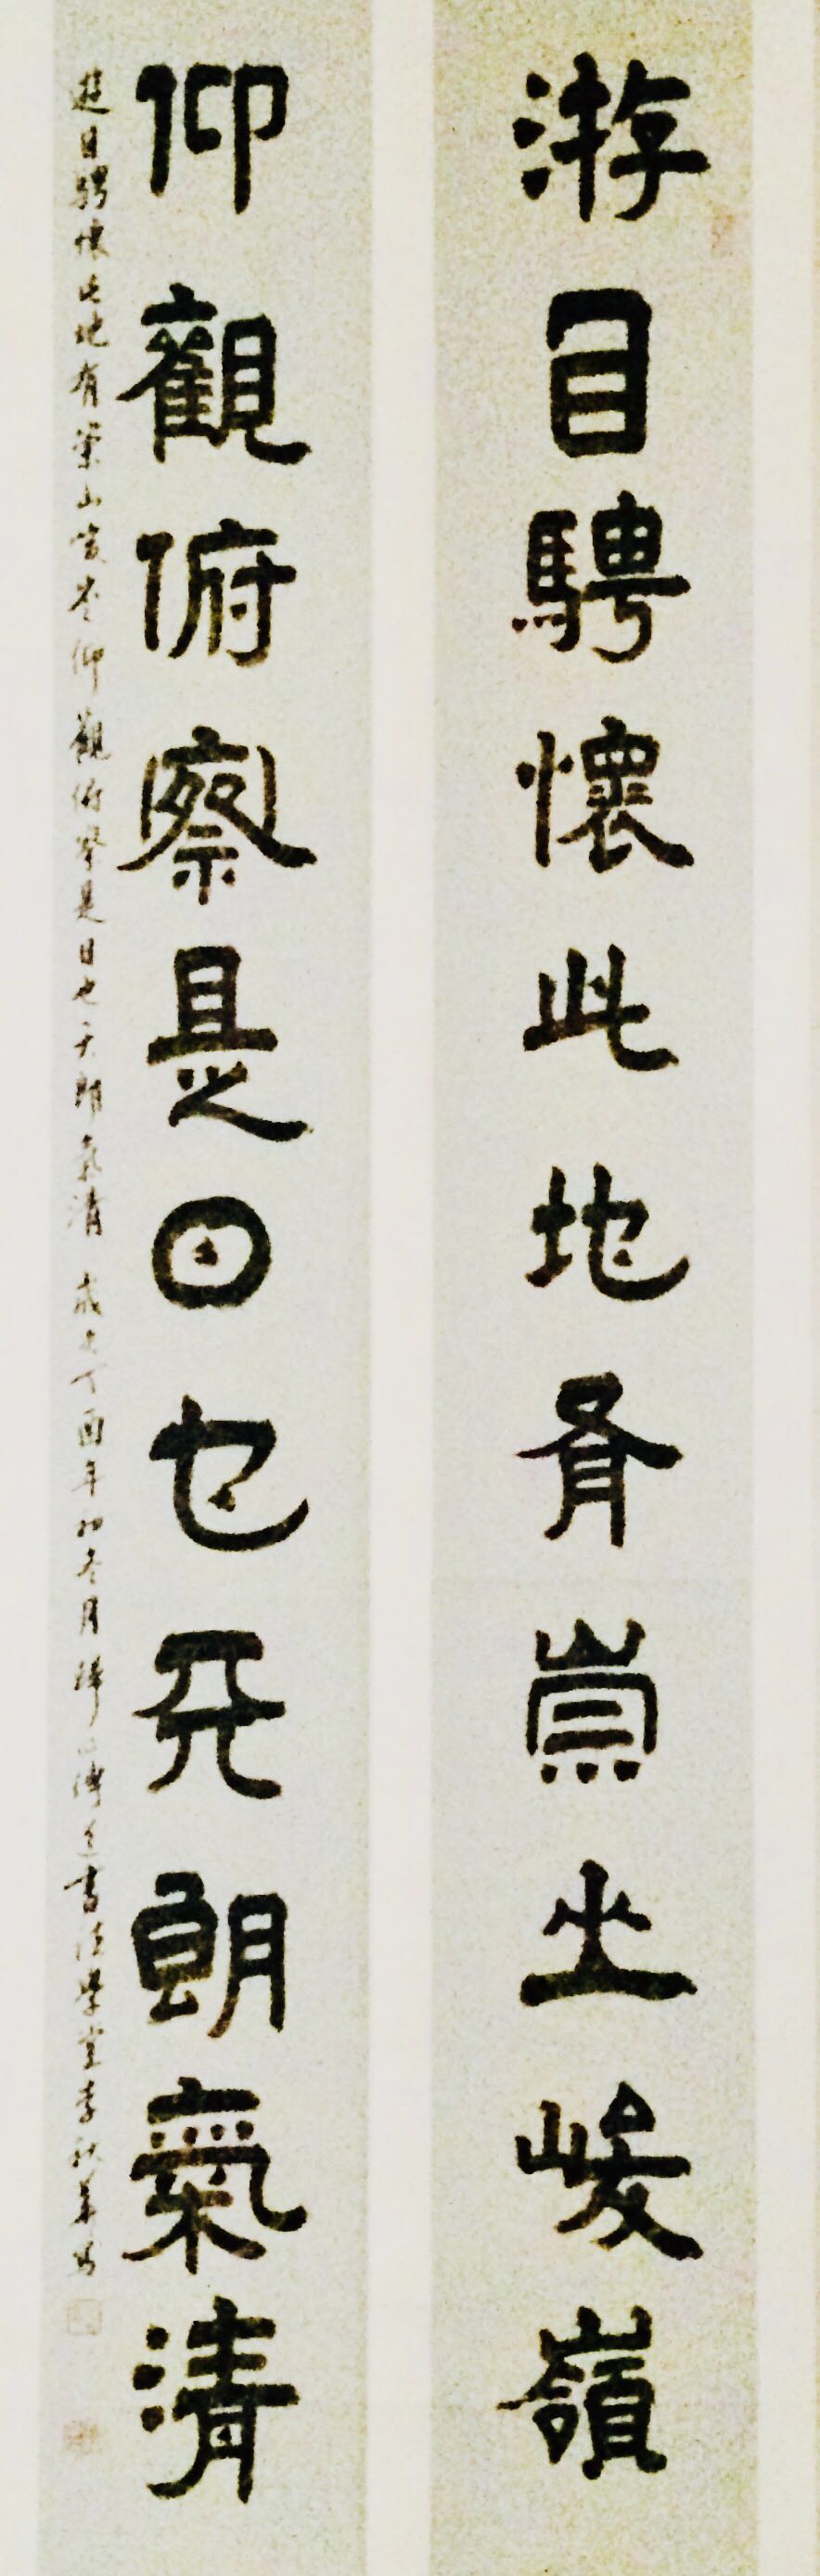 游目騁懷此地有崇山峻嶺
仰觀俯察是日也天朗氣清
遊目騁懷此地有崇山峻嶺仰觀俯察是日也天朗氣清 歲次丁酉年初冬月 書法學堂李秋